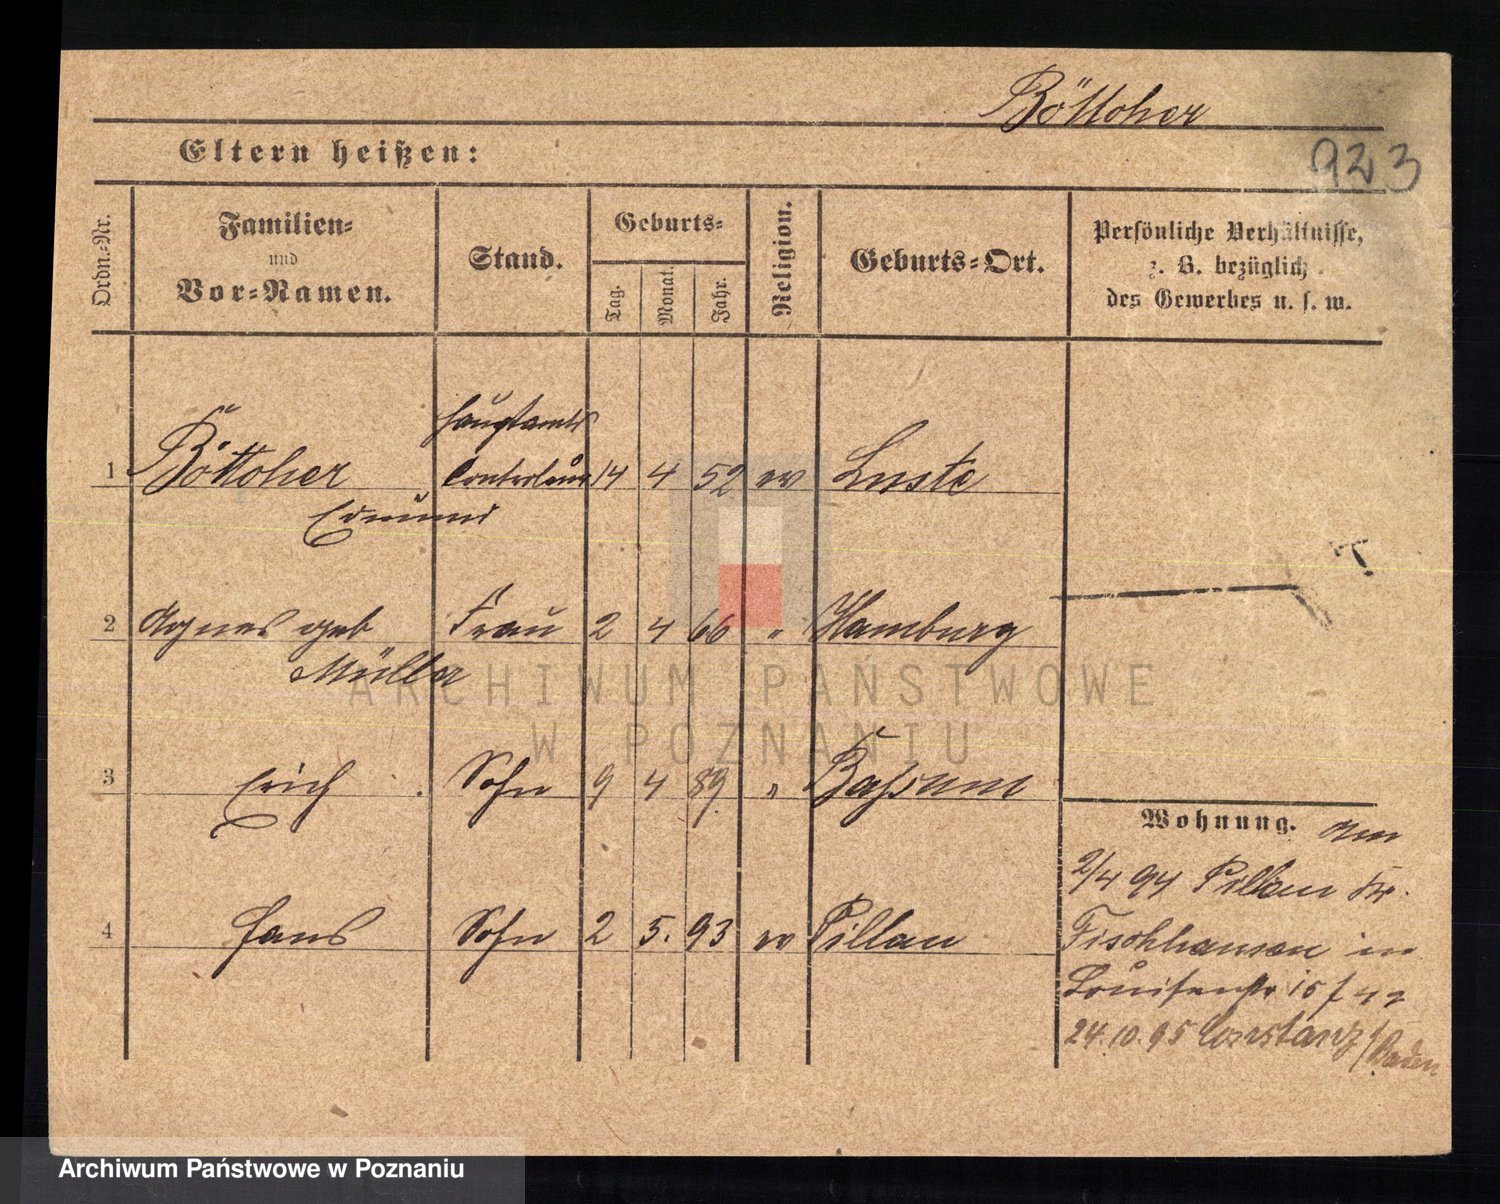 Böttcher
923
Eltern heißen:
Ordn.-Nr.
Familien-
und
Vor-Namen.
Stand.
Geburts-
Tag.
Monat.
Jahr.
Religion.
Geburts-Ort.
Persönliche Verhältnisse,
z. B. bezüglich
des Gewerbes u. s. w.
Hauptamts
1 Böttcher Controleur 14 4 52 ev Luste
Edmund
2 Agnes geb Frau 2 4 66 „ Hamburg
Müller
3 Erich Sohn 9 4 89 „ Baßum
4 Hans Sohn 2 5. 93 ev Pillau
Wohnung. am
2/4 94 Pillau Kr.
Fischhausen in
Louisenstr 15
24.10.95 Constanz/Baden
ARCHIWUM PAŃSTWOWE
W POZNANIU
Archiwum Państwowe w Poznaniu